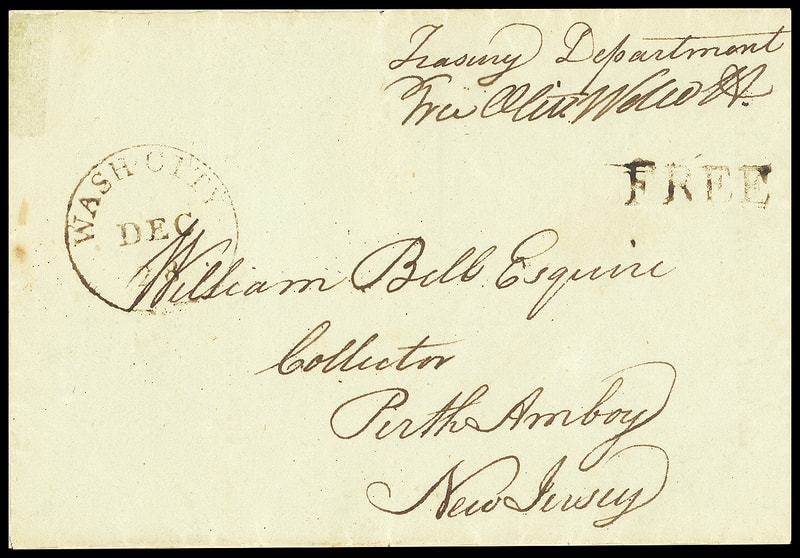 Treasury Department
Free Oliv. Wolcott
FREE
WASH. CITY
DEC
William Bell Esquire
Collector
Perth Amboy
New Jersey